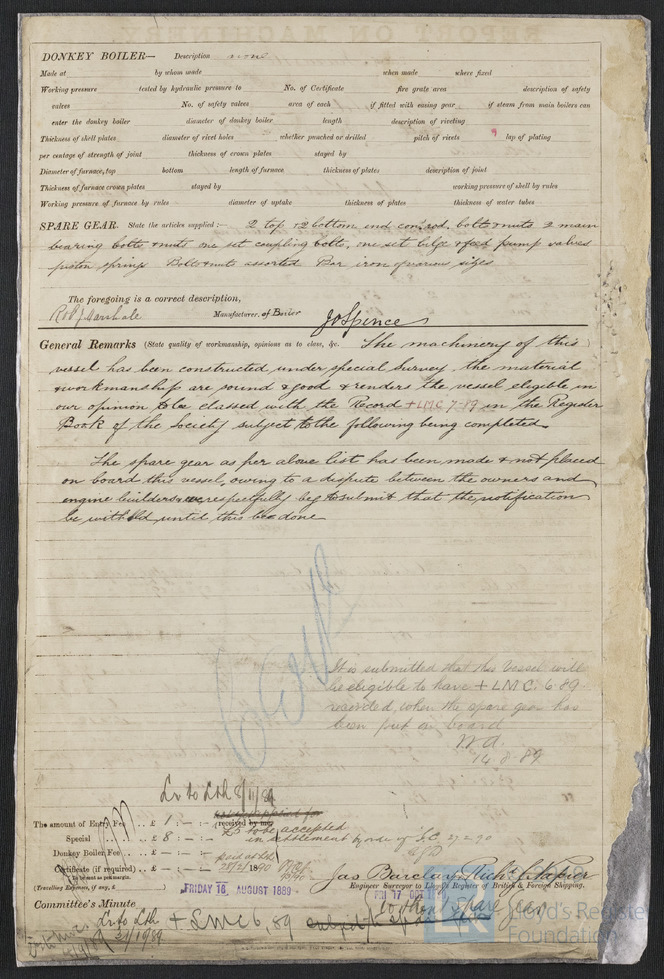 DONKEY BOILER— Description none
Made at by whom made when made where fixed
Working pressure tested by hydraulic pressure to No. of Certificate fire grate area description of safety
valves No. of safety valves area of each if fitted with easing gear if steam from main boilers can
enter the donkey boiler diameter of donkey boiler length description of riveting
Thickness of shell plates diameter of rivet holes whether punched or drilled pitch of rivets lap of plating
per centage of strength of joint thickness of crown plates stayed by
Diameter of furnace, top bottom length of furnace thickness of plates description of joint
Thickness of furnace crown plates stayed by working pressure of shell by rules
Working pressure of furnace by rules diameter of uptake thickness of plates thickness of water tubes
SPARE GEAR. State the articles supplied:— 2 top & 2 bottom end con rod, bolts & nuts. 2 main
bearing bolts & nuts one set coupling bolts, one set bilge & feed pump valves
piston springs Bolts & nuts assorted Bar iron of various sizes
The foregoing is a correct description,
Manufacturer. of Boiler Jo Spence
General Remarks (State quality of workmanship, opinions as to class, &c. The machinery of this
vessel has been constructed under special survey, the material
& workmanship are sound & good & renders the vessel eligible in
our opinion to be classed with the Record +LMC 7-89 in the Register
Book of the Society subject to the following being completed
The spare gear as per above list has been made & not placed
on board this vessel, owing to a dispute between the owners and
engine builders, we respectfully beg to submit that the notification
be withheld until this be done
It is submitted that this Vessel will
be eligible to have + LMC. 6.89
recorded, when the spare gear has
been put on board
14.8.89
The amount of Entry Fee .. £ 1 : — : — received by me,
to be accepted
Special .. £ 8 : — : — in settlement
Donkey Boiler Fee .. £ — : — : —
Certificate (if required) .. £ — : — : — 1890
To be sent as per margin.
(Travelling Expenses, if any, £ )
Jas Barclay
Engineer Surveyor to Lloyd's Register of British & Foreign Shipping.
FRIDAY 16 AUGUST 1889
FRI 17 OCT
Committee's Minute
+ LMC 6, 89 subject to spare gear
Lloyd's Register
Foundation